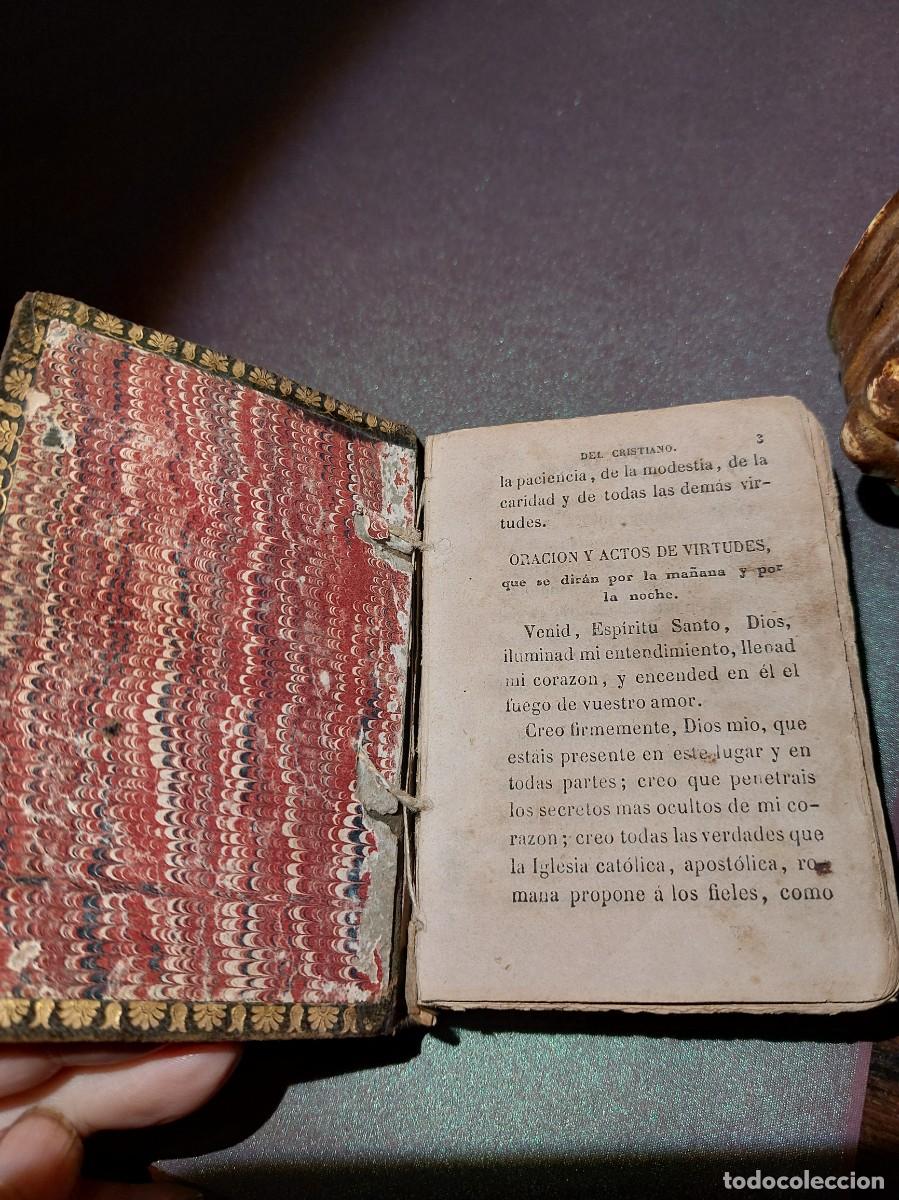 DEL CRISTIANO. 3
la paciencia, de la modestia, de la
caridad y de todas las demás vir-
tudes.
ORACION Y ACTOS DE VIRTUDES,
que se dirán por la mañana y por
la noche.
Venid, Espíritu Santo, Dios,
iluminad mi entendimiento, llenad
mi corazon, y encended en él el
fuego de vuestro amor.
Creo firmemente, Dios mio, que
estais presente en este lugar y en
todas partes; creo que penetrais
los secretos mas ocultos de mi co-
razon; creo todas las verdades que
la Iglesia católica, apostólica, ro-
mana propone á los fieles, como
todocoleccion